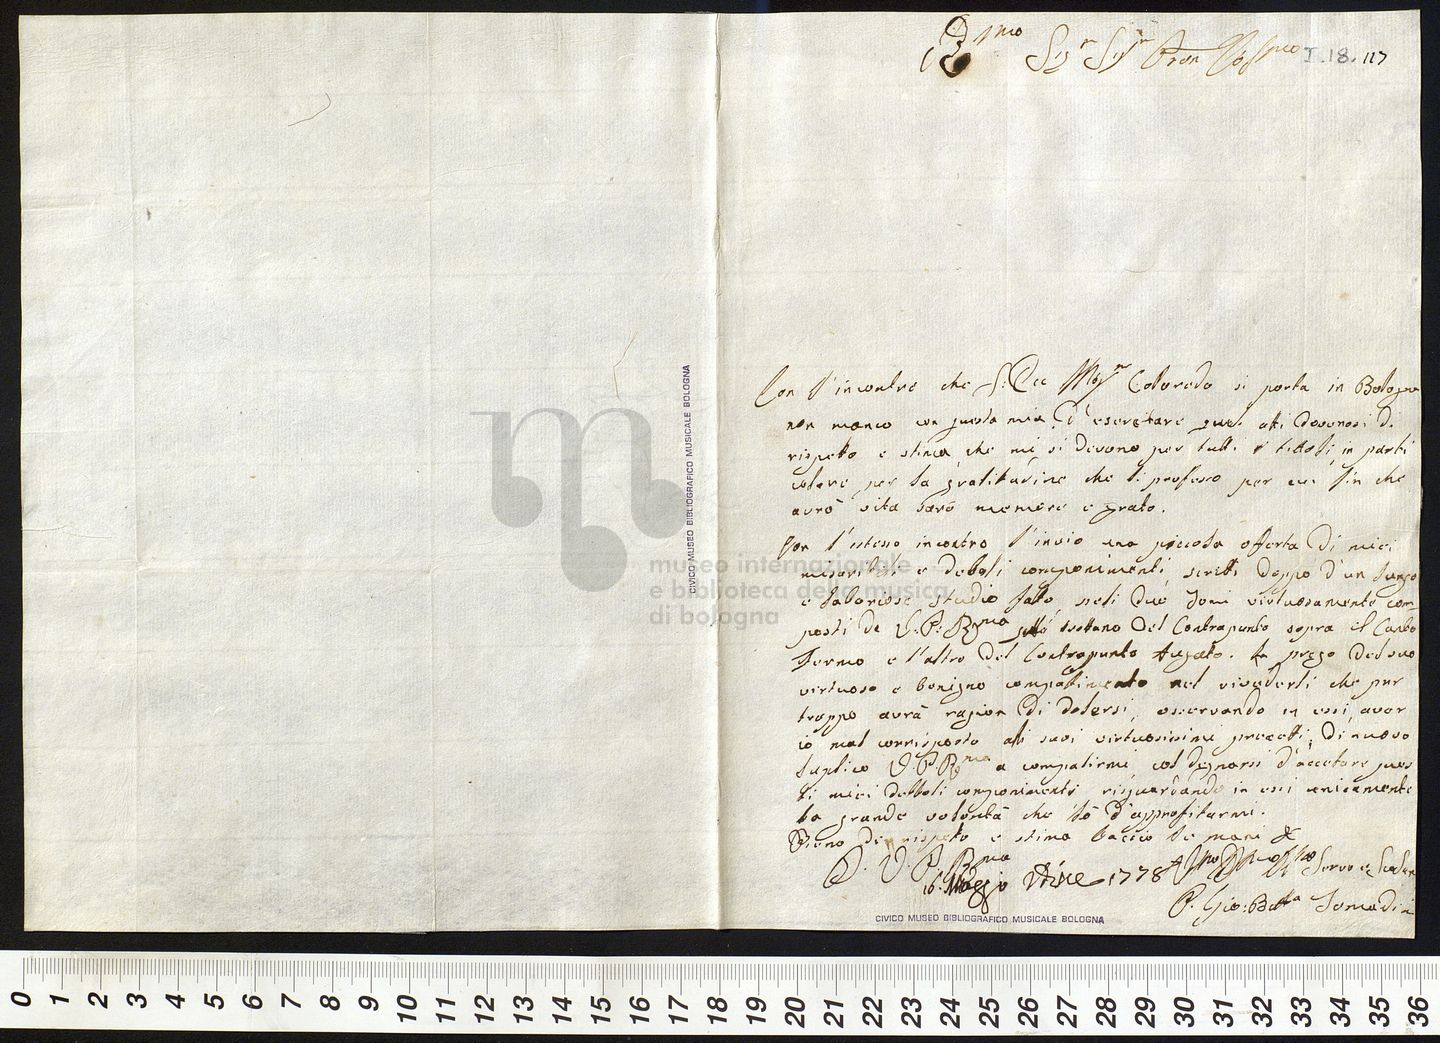 Rmo Sigr Sigr Pron Cosmo
I.18. 117
Con l'incontro che S: Ecc Mosr Coloredo si porta in Bologna
non manco con questa mia, d'esercitare quei atti doverosi di
rispetto e stima, che mi si devono per tutti i tittoli, in parti
colare per la gratitudine che li professo per cui fin che
avrò vita sarò memore e grato.
Con l'istesso incontro l'invio una piccola offerta di miei
e deboli componimenti, scritti doppo d'un lungo
e laborioso studio fatto, neli due tomi virtuosamente com-
posti da V. P. Rma trattano del Contrapunto sopra il Canto
Fermo e l'altro del Contrapunto fugato. La prego del suo
virtuoso e benigno compatimento nel rivederli che pur
troppo avrà ragion di dolersi, osservando in essi, aver
io mal corrisposto alli suoi virtuosissimi precetti; Di nuovo
suplico V. P. Rma a compatirmi, col degnarsi d'accetare ques
ti miei debboli componimenti risguardando in essi unicamente
la grande volontà che hò d'approfitarmi.
Pieno di rispeto e stima baccio le mani &
D. V. P. Rma
16 Maggio Udine 1778 Servo e Scolar
P. Gio: Batta Tomadini
CIVICO MUSEO BIBLIOGRAFICO MUSICALE BOLOGNA
CIVICO MUSEO BIBLIOGRAFICO MUSICALE BOLOGNA
museo internazionale
e biblioteca della musica
di bologna
0 1 2 3 4 5 6 7 8 9 10 11 12 13 14 15 16 17 18 19 20 21 22 23 24 25 26 27 28 29 30 31 32 33 34 35 36